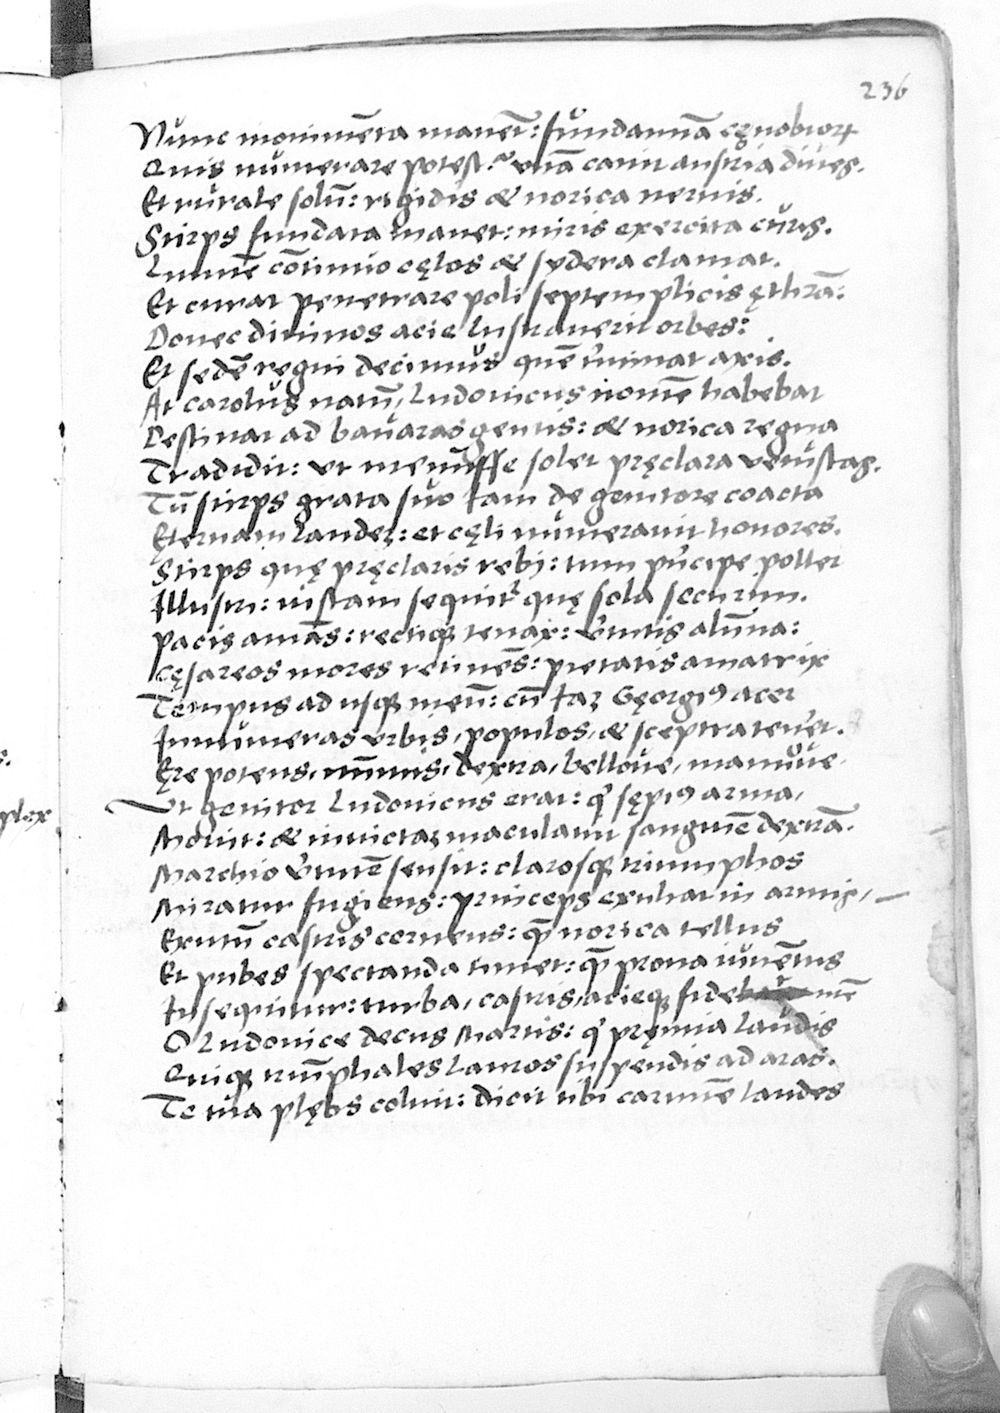 236
Nunc monimēta manēt: fundamīa cęnobioꝝ
Quis numerare potest? vnā canit austria diues.
Et rurale solū: rigidis & norica neruis.
Stirps fundata manet: miris exercita curis.
Lumē cōtinuo cęlos & sydera clamat.
Et curat penetrare poli septemplicis ęthrā:
Donec diuinos acie lustrauerit orbes:
Et sedē regni decimus quē luminat axis.
At carolus natū, Ludouicus nomē habebat
Destinat ad bauaras gentis: & norica regna
Tradidit: vt meminisse solet pręclara vetustas.
Tū stirps grata suo iam de genitore coacta
Ęternam laudeꝫ: et cęli numerauit honores.
Stirps quę pręclaris rebꝰ: tum prīcipe pollet
Illustri: iustam sequitꝛ quę sola securim.
Pacis amās: rectiqꝫ tenax: vtutis alūna:
Cęsareos mores retinēs: pietatis amatrix
Tempus ad usqꝫ meū: cū iaꝫ Gęorgiꝰ acer
Innumeras vrbis, populos, & sceptra tenet.
Ęre potens, nūmis, dextra, belloue, manuue.
Vt genitor Ludouicus erat: q sępiꝰ arma,
Mouit: & inuictaꝫ maculauit sanguine dextrā.
Marchio vtutē sensit: clarosqꝫ triumphos
Miratur fugiens: princeps exultat in armis,
Exutū castris cernens: qꝫ norica tellus
Et pubes spectanda timet: qꝫ prona iuuētus
Insequitur: turba, castris, acieqꝫ
O Ludouice decus Martis: q pręmia laudis
Quiqꝫ triūphales lauros suspendis ad aras.
Te tua plębs coluit: dicit tibi carmine laudes
s.
plex